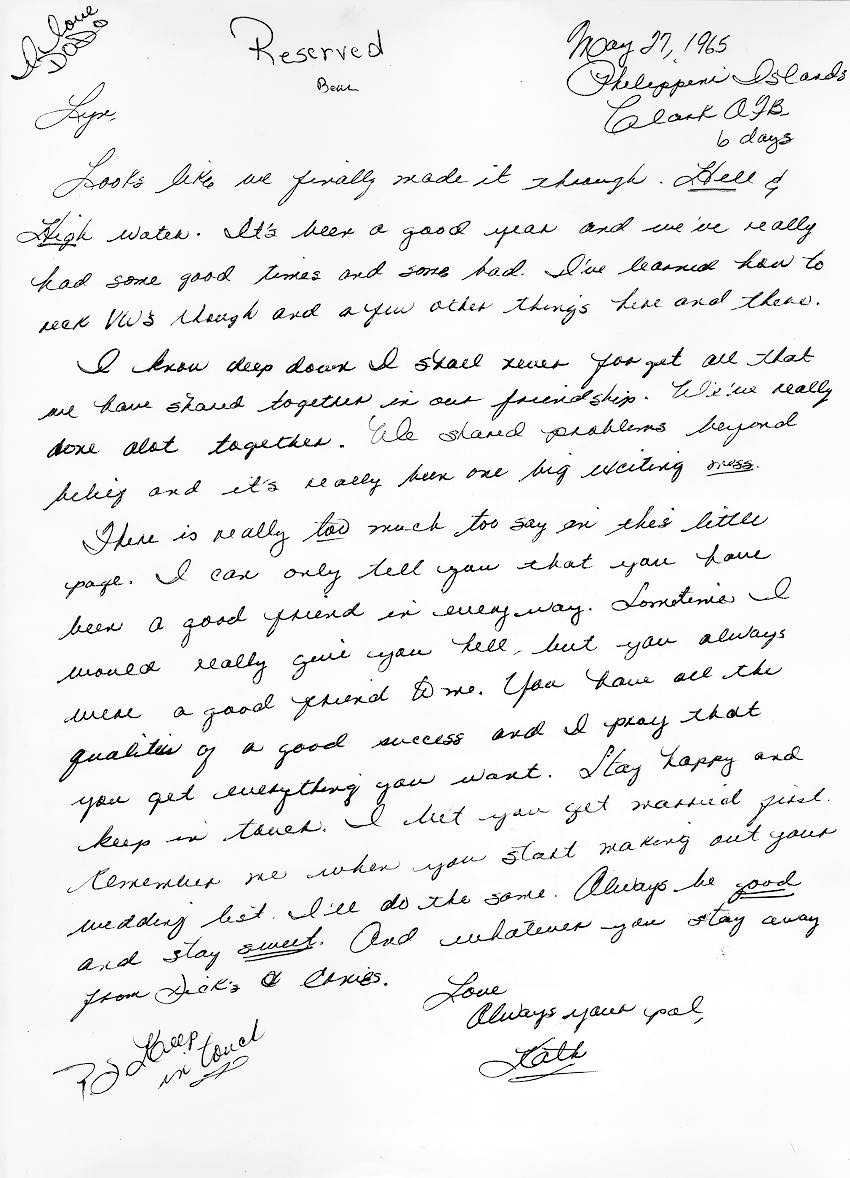 In love
DODO
Reserved
Bear
May 27, 1965
Philippeni Islands
Clark AFB
6 days
Lyn,
Looks like we finally made it through. Hell &
High water. It's been a good year and we've really
had some good times and some bad. I've learned how to
reck VW's though and a few other things here and there.
I know deep down I shall never forget all that
we have shared together in our friendship. We've really
done alot together. We shared problems beyond
belief and it's really been one big exciting mess.
There is really too much too say on this little
page. I can only tell you that you have
been a good friend in every way. Sometimes I
would really give you hell, but you always
were a good friend to me. You have all the
qualities of a good success and I pray that
you get everything you want. Stay happy and
keep in touch. I bet you get married first.
Remember me when you start making out your
wedding list. I'll do the same. Always be good
and stay sweet. And whatever you stay away
from Dick's &
Love
Always your pal,
Kath
PS Keep
in touch